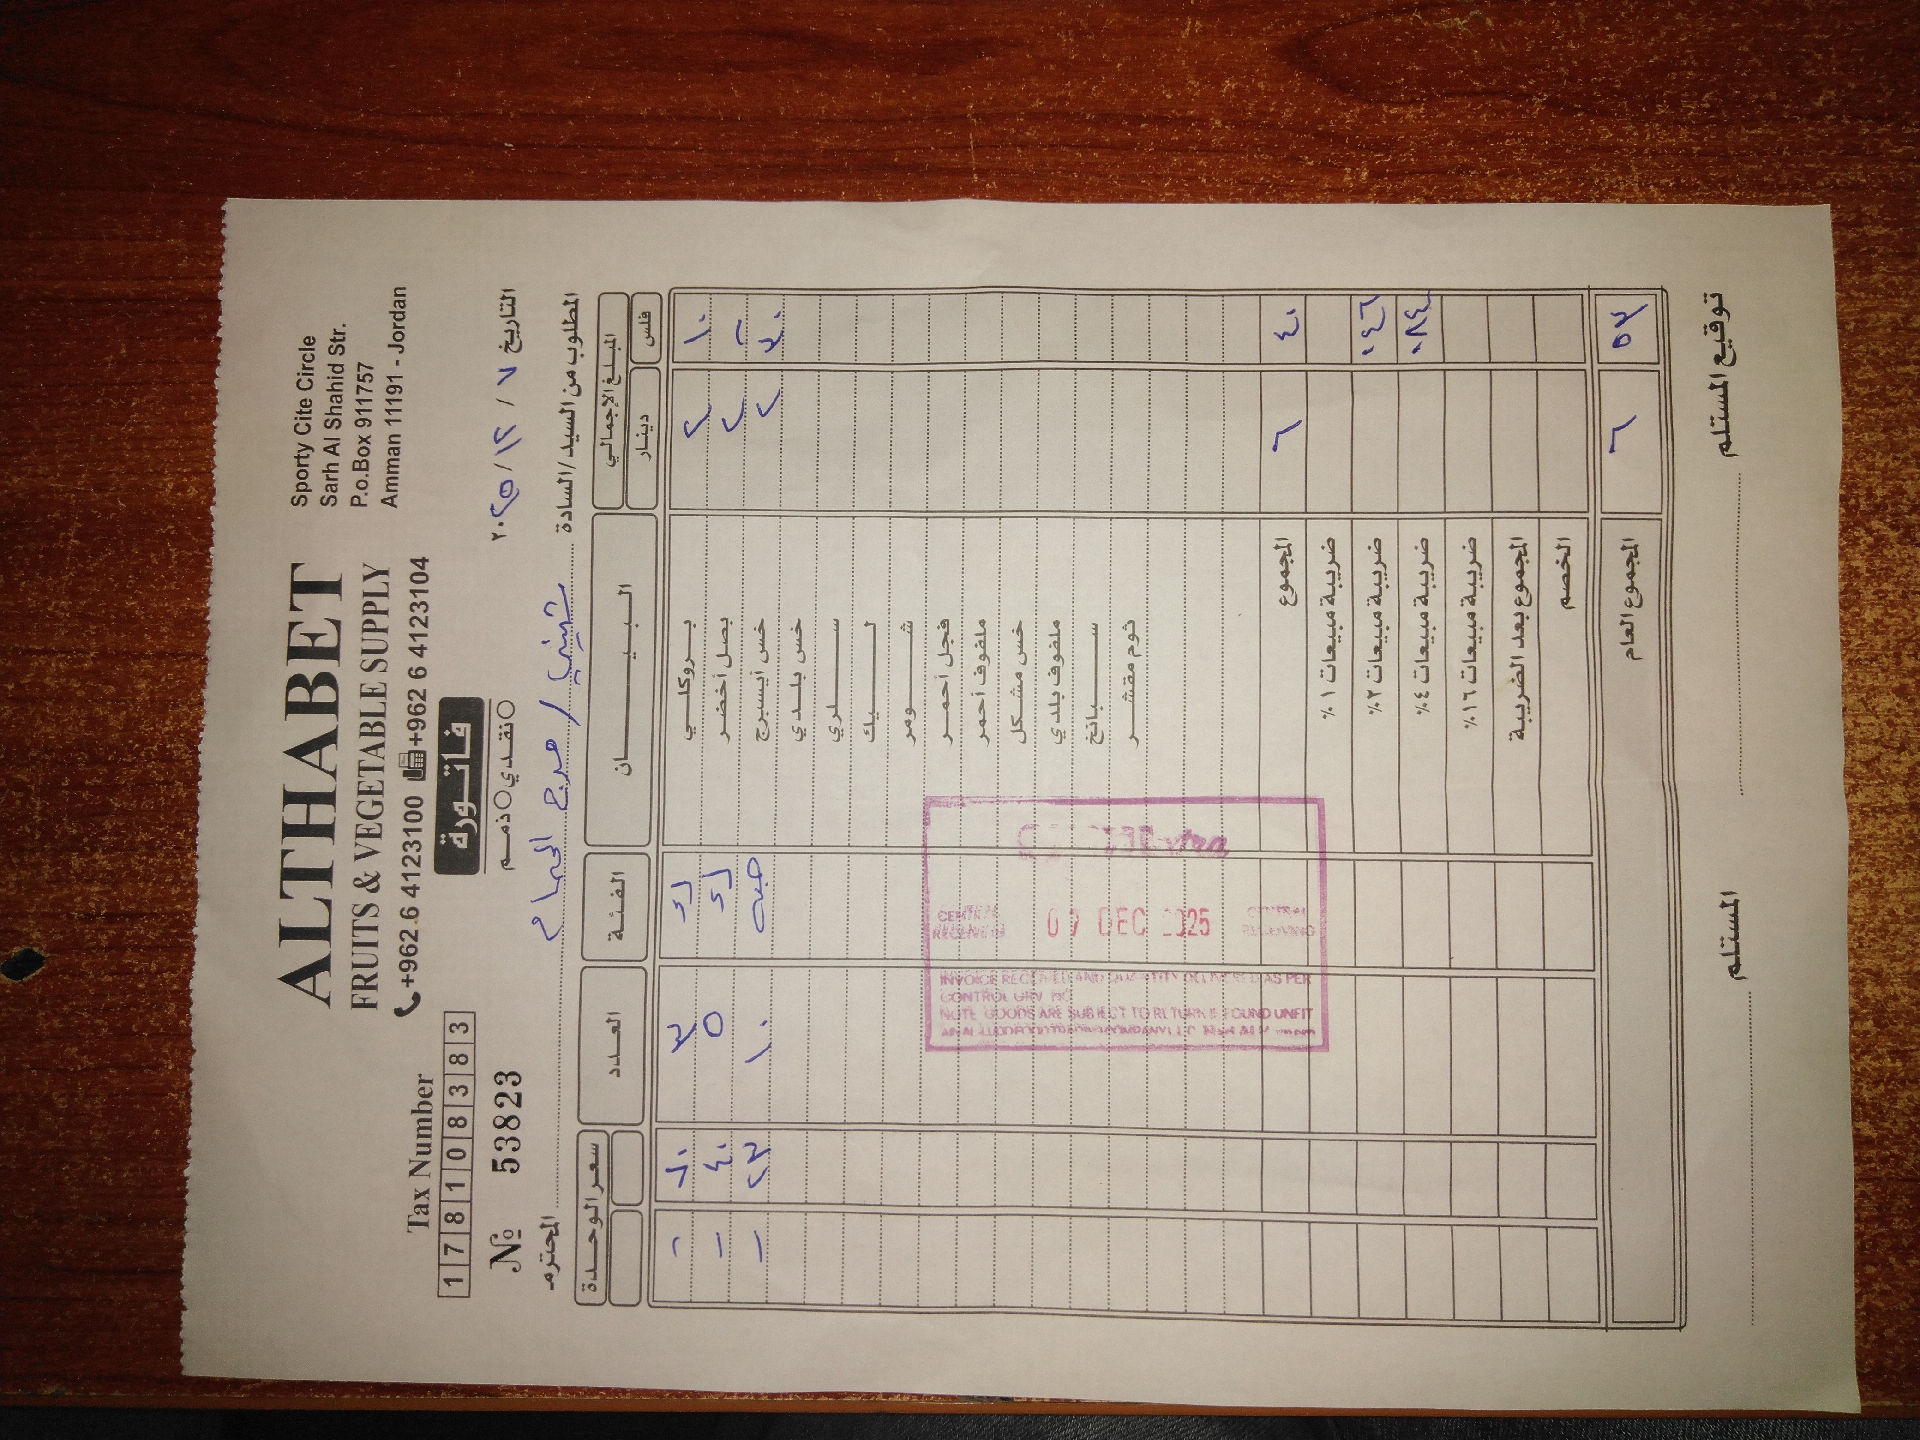 ALTHABET
FRUITS & VEGETABLE SUPPLY
+962.6 4123100 +962 6 4123104
Sporty Cite Circle
Sarh Al Shahid Str.
P.o.Box 911757
Amman 11191 - Jordan
Tax Number
178108383
فاتورة
نقدي ذمم
№ 53823
التاريخ ٧ / ١٢ / ٢٠٢٥
المطلوب من السيد/السادة مرج الحمام المحترم
المبلغ الإجمالي البيـــــان الفئة العدد سعر الوحدة
دينار فلس
بروكلي ٣
بصل أخضر ٢ ٥ ١ ٤٠
خس أيسبرج ٢ ٣٠ حبه ١٠ ١ ٢٣
خس بلدي
سلري
ليك
شومر
فجل أحمر
ملفوف أحمر
خس مشكل
ملفوف بلدي
سبانخ
ثوم مقشر
المجموع ٦ ٤٠
ضريبة مبيعات ١٪
ضريبة مبيعات ٢٪ ٠٤٦
ضريبة مبيعات ٤٪ ٠٨٤
ضريبة مبيعات ١٦٪
المجموع بعد الضريبة
الخصم
المجموع العام ٦ ٥٣
توقيع المستلم
المستلم
CENTRAL RECEIVING 07 DEC 2025 CENTRAL RECEIVING
INVOICE RECEIVED AND QUANTITY DELIVERED AS PER
CONTROL GRV NO
NOTE GOODS ARE SUBJECT TO RETURN IF FOUND UNFIT